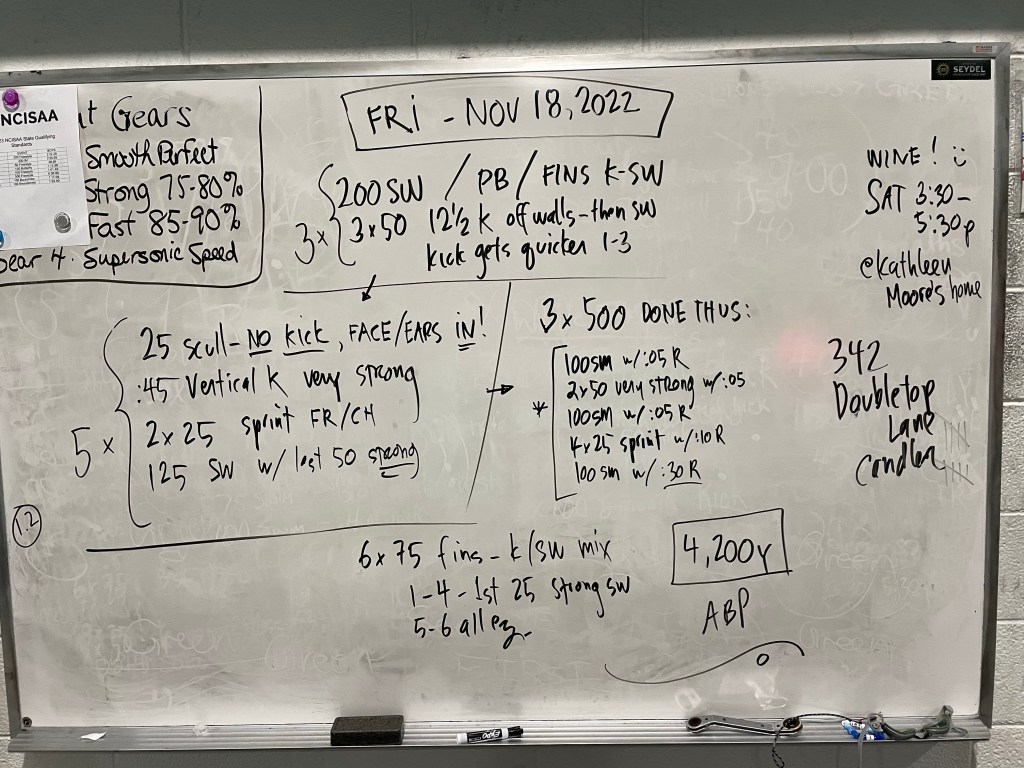 NCISAA
NCISAA State Qualifying
Standards
t Gears
Smooth Perfect
Strong 75-80%
Fast 85-90%
Gear 4. Supersonic Speed
FRi - NOV 18, 2022
3x
200 SW / PB / FINS K-SW
3x50 12½ K off walls - then SW
Kick gets quicker 1-3
5x
25 scull - NO kick, FACE/EARS IN!
:45 Vertical K very strong
2x25 sprint FR/CH
125 SW w/ last 50 strong
1.2
3x500 DONE THUS:
*
100sm w/:05 R
2x50 very strong w/:05
100sm w/:05 R
4x25 sprint w/:10 R
100 sm w/:30 R
6x75 fins - k/sw mix
1-4 - 1st 25 strong sw
5-6 all ez.
4,200y
ABP
WINE!
SAT 3:30-
5:30p
@Kathleen
Moore's home
342
Doubletop
Lane
Candler
SEYDEL
EXPO